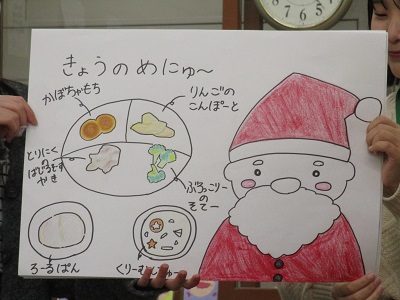 きょうのめにゅ〜
かぼちゃもち
りんごの
こんぽーと
とりにく
の
やき
ぶろっこりー
の
そてー
ろーるぱん
くりーむしちゅー